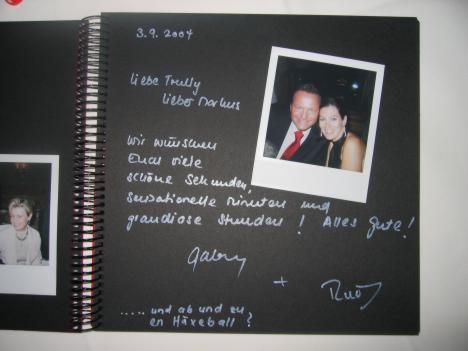 3.9.2004
Liebe Trully
lieber Markus
Wir wünschen
Euch viele
schöne Sekunden,
sensationelle Minuten und
grandiose Stunden! Alles Gute!
Gabry
+
..... und ab und zu
en Häxeball?